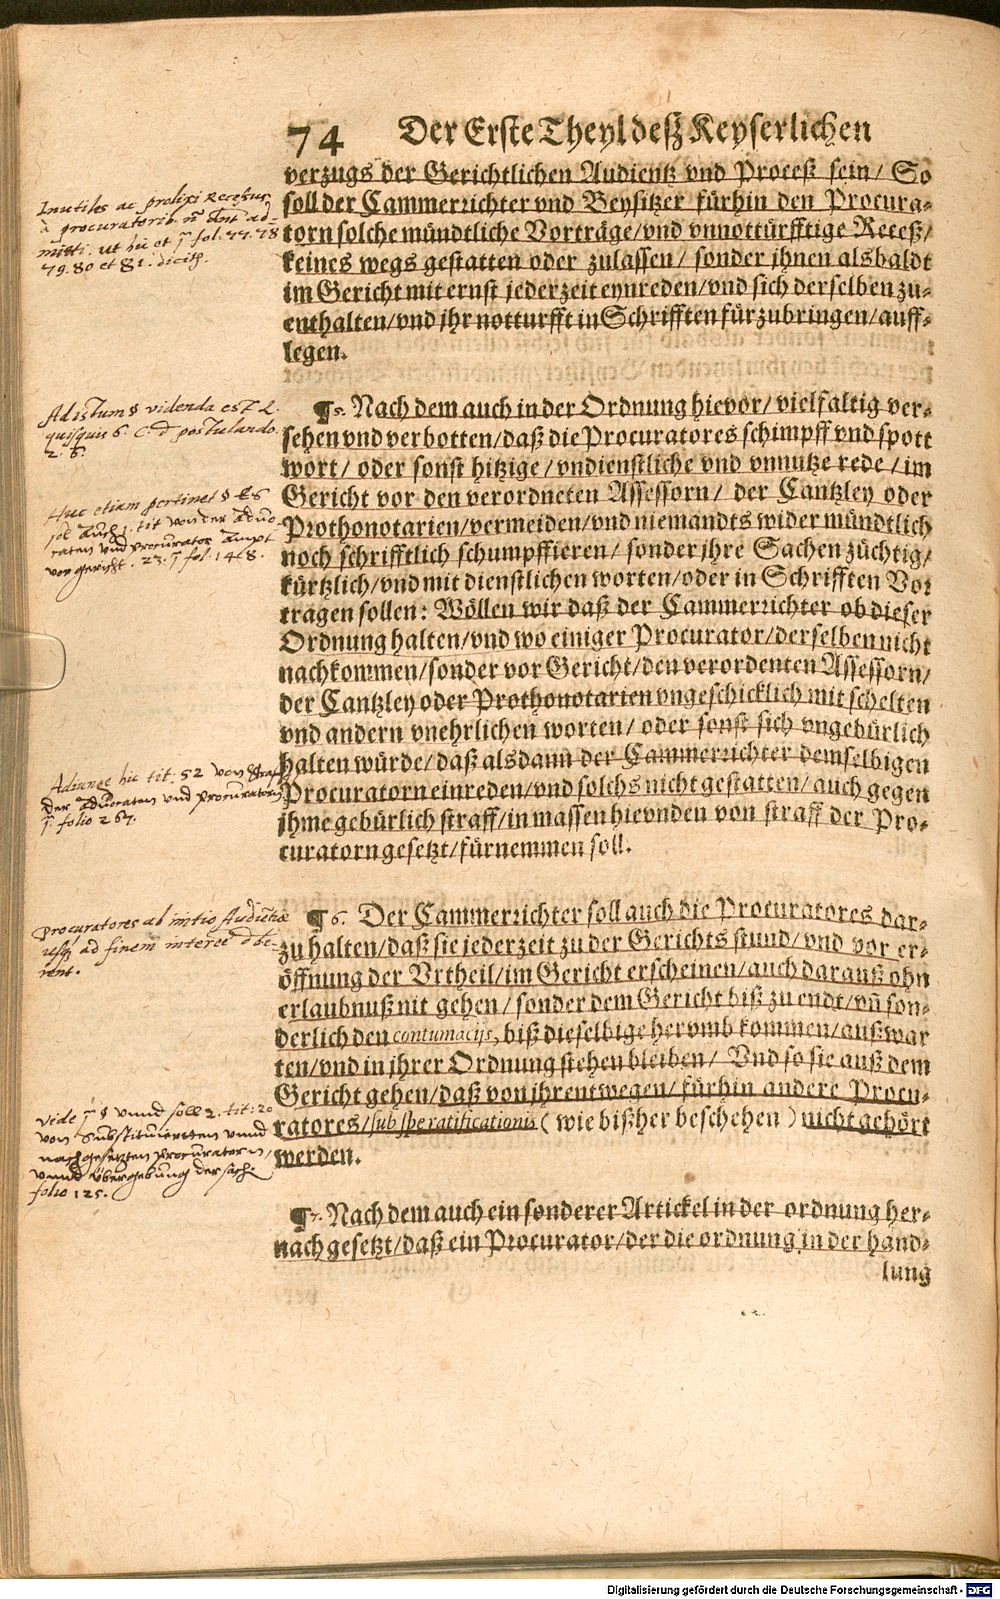 74 Der Erste Theyl deß Keyserlichen
verzugs der Gerichtlichen Audientz vnd Proceß sein/ So
soll der Cammerrichter vnd Beysitzer fürhin den Procura-
torn solche mündtliche Vorträge/vnd vnnottürfftige Receß/
keines wegs gestatten oder zulassen/ sonder jhnen alsbaldt
im Gericht mit ernst jederzeit eynreden/vnd sich derselben zu-
enthalten/vnd jhr notturfft in Schrifften fürzubringen/auff-
legen.
Inutiles ac prolixi Recessus
a procuratorib. nō sint ad-
mitti. ut hic et fol. 77. 78
79. 80 et 81. dicit.
¶ 5. Nach dem auch in der Ordnung hievor/ vielfaltig ver-
sehen vnd verbotten/daß die Procuratores schimpff vnd spott
wort/ oder sonst hitzige/ vndienstliche vnd vnnutze rede/im
Gericht vor den verordneten Assessorn/ der Cantzley oder
Prothonotarien/vermeiden/vnd niemandts wider mündtlich
noch schrifftlich schumpffieren/ sonder jhre Sachen züchtig/
kürtzlich/vnd mit dienstlichen worten/oder in Schrifften Vor
tragen sollen: Wöllen wir daß der Cammerrichter ob dieser
Ordnung halten/vnd wo einiger Procurator/derselben nicht
nachkommen/sonder vor Gericht/den verordenten Assessorn/
der Cantzley oder Prothonotarien vngeschicklich mit schelten
vnd andern vnehrlichen worten/ oder sonst sich vngebürlich
halten würde/ daß alsdann der Cammerrichter demselbigen
Procuratorn einreden/vnd solchs nicht gestatten/ auch gegen
jhme gebürlich straff/in massen hievnden von straff der Pro-
curatorn gesetzt/fürnemmen soll.
Ad istum § videnda est L.
quisquis 6. C. d postulando.
2. 6.
Huc etiam pertinet § Es
sol auch. tit von der aduo-
caten vnd procurator ampt
vor gericht. 23. fol. 148.
Adiunge hic tit. 52 von straf
der aduocaten vnd procuratorn
folio 267.
¶ 6. Der Cammerrichter soll auch die Procuratores dar-
zu halten/daß sie jederzeit zu der Gerichts stund/vnd vor er-
öffnung der Vrtheil/im Gericht erscheinen/auch darauß ohn
erlaubnuß nit gehen/ sonder dem Gericht biß zu endt/vñ son-
derlich den contumacijs, biß dieselbige hervmb kommen/außwar
ten/vnd in jhrer Ordnung stehen bleiben/ Vnd so sie auß dem
Gericht gehen/daß von jhrentwegen/ fürhin andere Procu-
ratores/sub spe ratificationis ( wie bißher beschehen ) nicht gehört
werden.
Procuratores ab initio Audiētiæ
usq ad finem interee debe-
rent.
Vide § vnnd soll 2. tit. 20
von Substituierten vnnd
nachgesetzten Procuratorn/
vnnd Übergebung der sach.
folio 125.
¶ 7. Nach dem auch ein sonderer Artickel in der ordnung her-
nach gesetzt/daß ein Procurator/der die ordnung in der hand-
lung
Digitalisierung gefördert durch die Deutsche Forschungsgemeinschaft - DFG